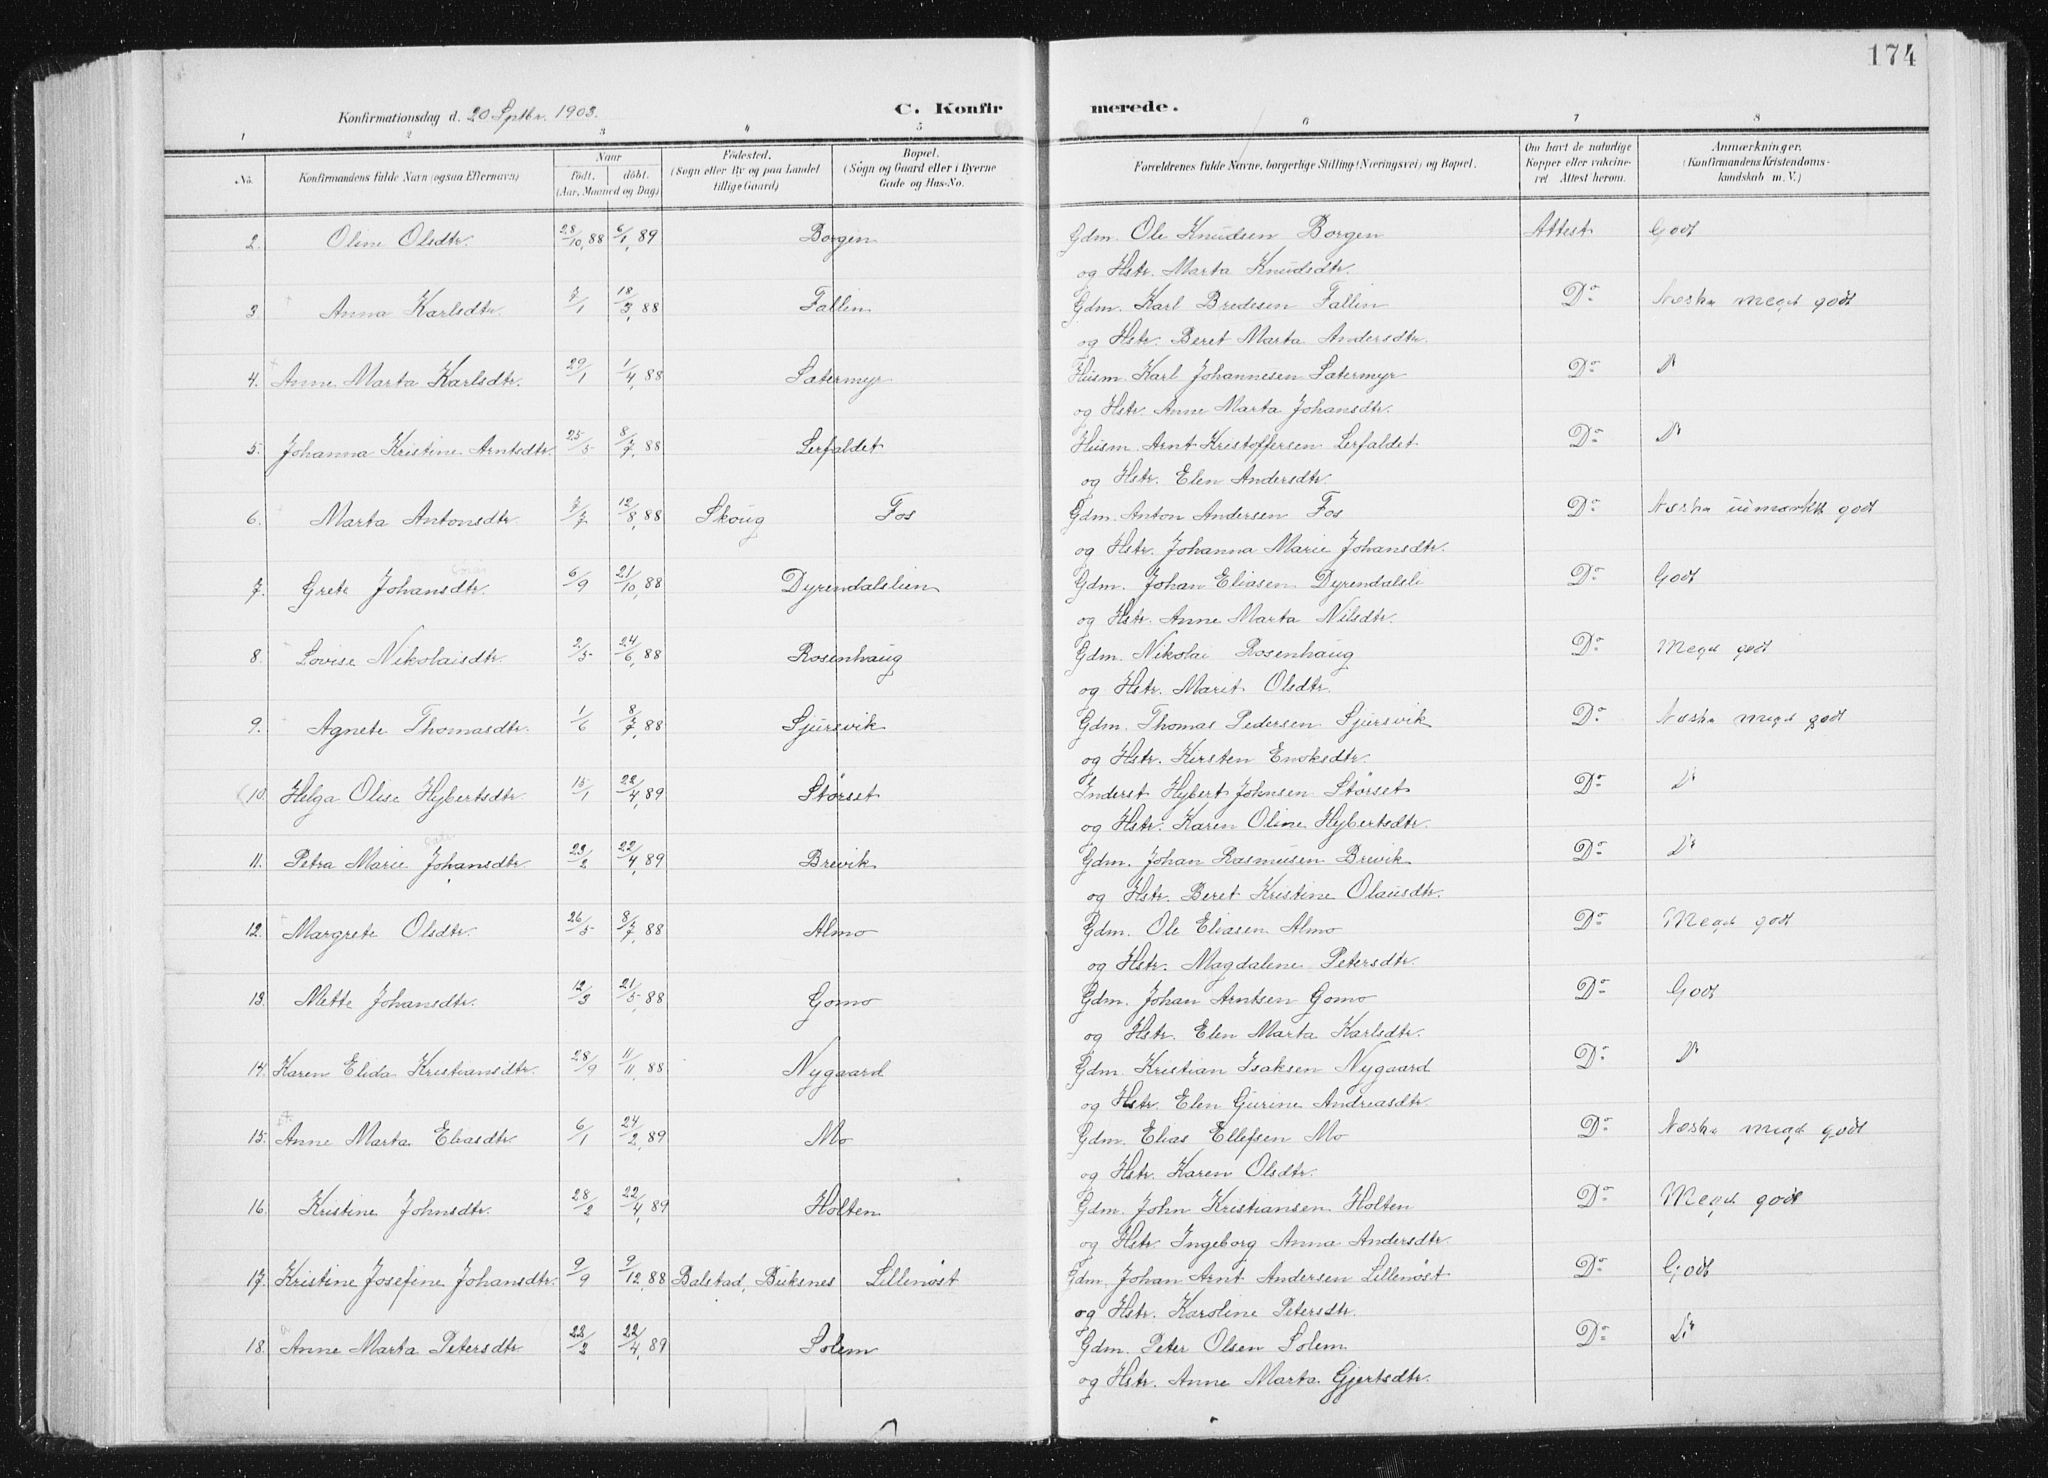 174
Konfirmationsdag d. 20 Septbr. 1903.
C. Konfir merede.
1 2 3 4 5 6 7 8
No. Konfirmandens fulde Navn (ogsaa Efternavn)
Naar født. døbt. (Aar, Maaned og Dag)
Fødested. (Sogn eller By og paa Landet tillige Gaard)
Bopæl. (Sogn og Gaard eller i Byerne Gade og Hus-No.
Forældrenes fulde Navne, borgerlige Stilling (Næringsvei) og Bopæl.
Om havt de naturlige Kopper eller vakcineret. Attest herom.
Anmærkninger. (Konfirmandens Kristendomskundskab m. V.)
2. Oline Olsdtr. 28/10, 88 6/1, 89 Borgen Gdm. Ole Knudsen Borgen Attest Godt
og Hstr. Marta Knudsdtr.
3. Anna Karlsdtr. 7/1 18/3, 88 Fallin Gdm. Karl Bredesen Fallin Do Næsten meget godt
og Hstr. Beret Marta Andersdtr.
4. Anne Marta Karlsdtr. 29/1 1/4, 88 Sætermyr Husm. Karl Johannesen Sætermyr Do Do
og Hstr. Anne Marta Johansdtr.
5. Johanna Kristine Arntsdtr. 25/5 8/7, 88 Lerfaldet Husm. Arnt Kristoffersen Lerfaldet Do Do
og Hstr. Elen Andersdtr.
6. Marta Antonsdtr. 7/7 12/8, 88 Skoug Fos Gdm. Anton Andersen Fos Do Næsten udmærket godt
og Hstr. Johanna Marie Johansdtr.
7. Grete Johansdtr. 6/9 21/10, 88 Dyrendalslien Gdm. Johan Eliasen Dyrendalsli Do Godt
og Hstr. Anne Marta Nilsdtr.
8. Lovise Nikolaisdtr. 2/5 24/6, 88 Rosenhaug Gdm. Nikolai Rosenhaug Do Meget godt
og Hstr. Marit Olsdtr.
9. Agnete Thomasdtr. 1/6 8/7, 88 Sjursvik Gdm. Thomas Pedersen Sjursvik Do Næsten meget godt
og Hstr. Kirsten Enoksdtr.
10. Helga Olise Hybertsdtr. 15/1 22/4, 89 Størset Inderst Hybert Johnsen Størset Do Do
og Hstr. Karen Oline Hybertsdtr.
11. Petra Marie Johansdtr. 23/2 22/4, 89 Brevik Gdm. Johan Rasmusen Brevik Do Do
og Hstr. Beret Kristine Olausdtr.
12. Margrete Olsdtr. 26/5 8/7, 88 Almo Gdm. Ole Eliasen Almo Do Meget godt
og Hstr. Magdalene Petersdtr.
13. Mette Johansdtr. 12/3 21/5, 88 Gomo Gdm. Johan Arntsen Gomo Do Godt
og Hstr. Elen Marta Karlsdtr.
14. Karen Elida Kristiansdtr. 28/9 11/11, 88 Nygaard Gdm. Kristian Isaksen Nygaard Do Do
og Hstr. Elen Gurine Andreasdtr.
15. Anne Marta Eliasdtr. 6/1 24/2, 89 Mo Gdm. Elias Ellefsen Mo Do Næsten meget godt
og Hstr. Karen Olsdtr.
16. Kristine Johnsdtr. 28/2 22/4, 89 Holten Gdm. John Kristiansen Holten Do Meget godt
og Hstr. Ingeborg Anna Andersdtr.
17. Kristine Josefine Johansdtr. 9/9 9/12, 88 Balstad, Buksnes Lillenøst Gdm. Johan Arnt Andersen Lillenøst Do Godt
og Hstr. Karoline Petersdtr.
18. Anne Marta Petersdtr. 22/2 22/4, 89 Solem Gdm. Peter Olsen Solem Do Do
og Hstr. Anne Marta Gjertsdtr.